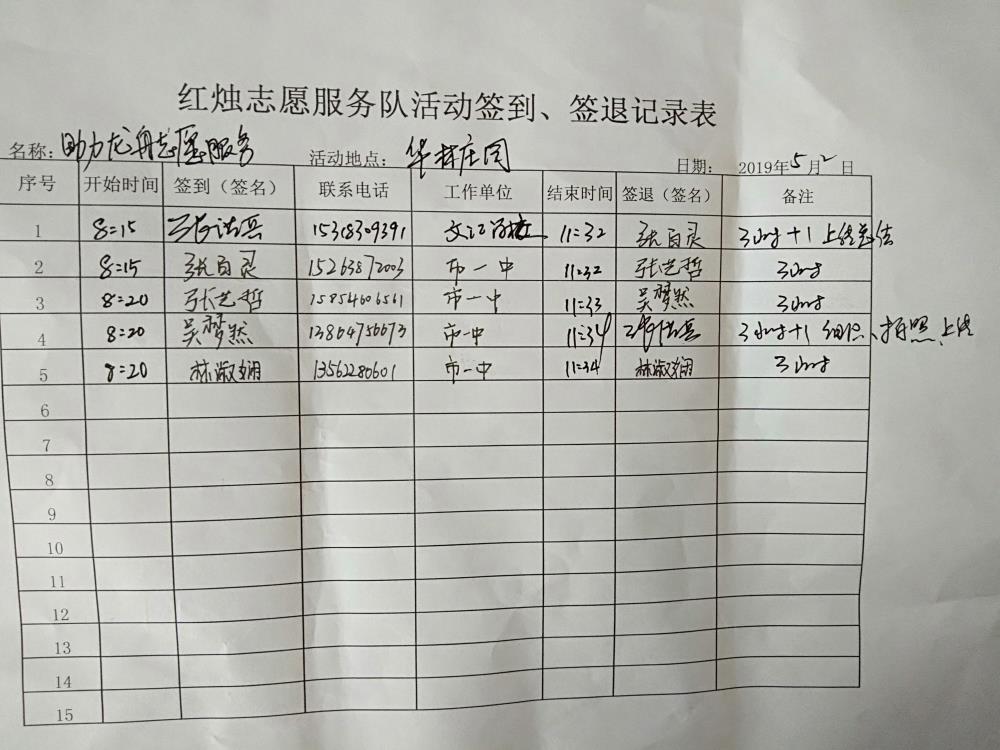 红烛志愿服务队活动签到、签退记录表
名称：助力龙舟志愿服务 活动地点：华林庄园 日期： 2019年5月2日
序号 开始时间 签到（签名） 联系电话 工作单位 结束时间 签退（签名） 备注
1 8:15 15308309391 11:32 张百灵 3小时+1
2 8:15 张百灵 15263872003 市一中 11:32 张艺哲 3小时
3 8:20 张艺哲 15854606561 市一中 11:33 吴梦然 3小时
4 8:20 吴梦然 13864756673 市一中 11:34 3小时+1 拍照、上传
5 8:20 林淑娴 13562280601 市一中 11:34 林淑娴 3小时
6
7
8
9
10
11
12
13
14
15